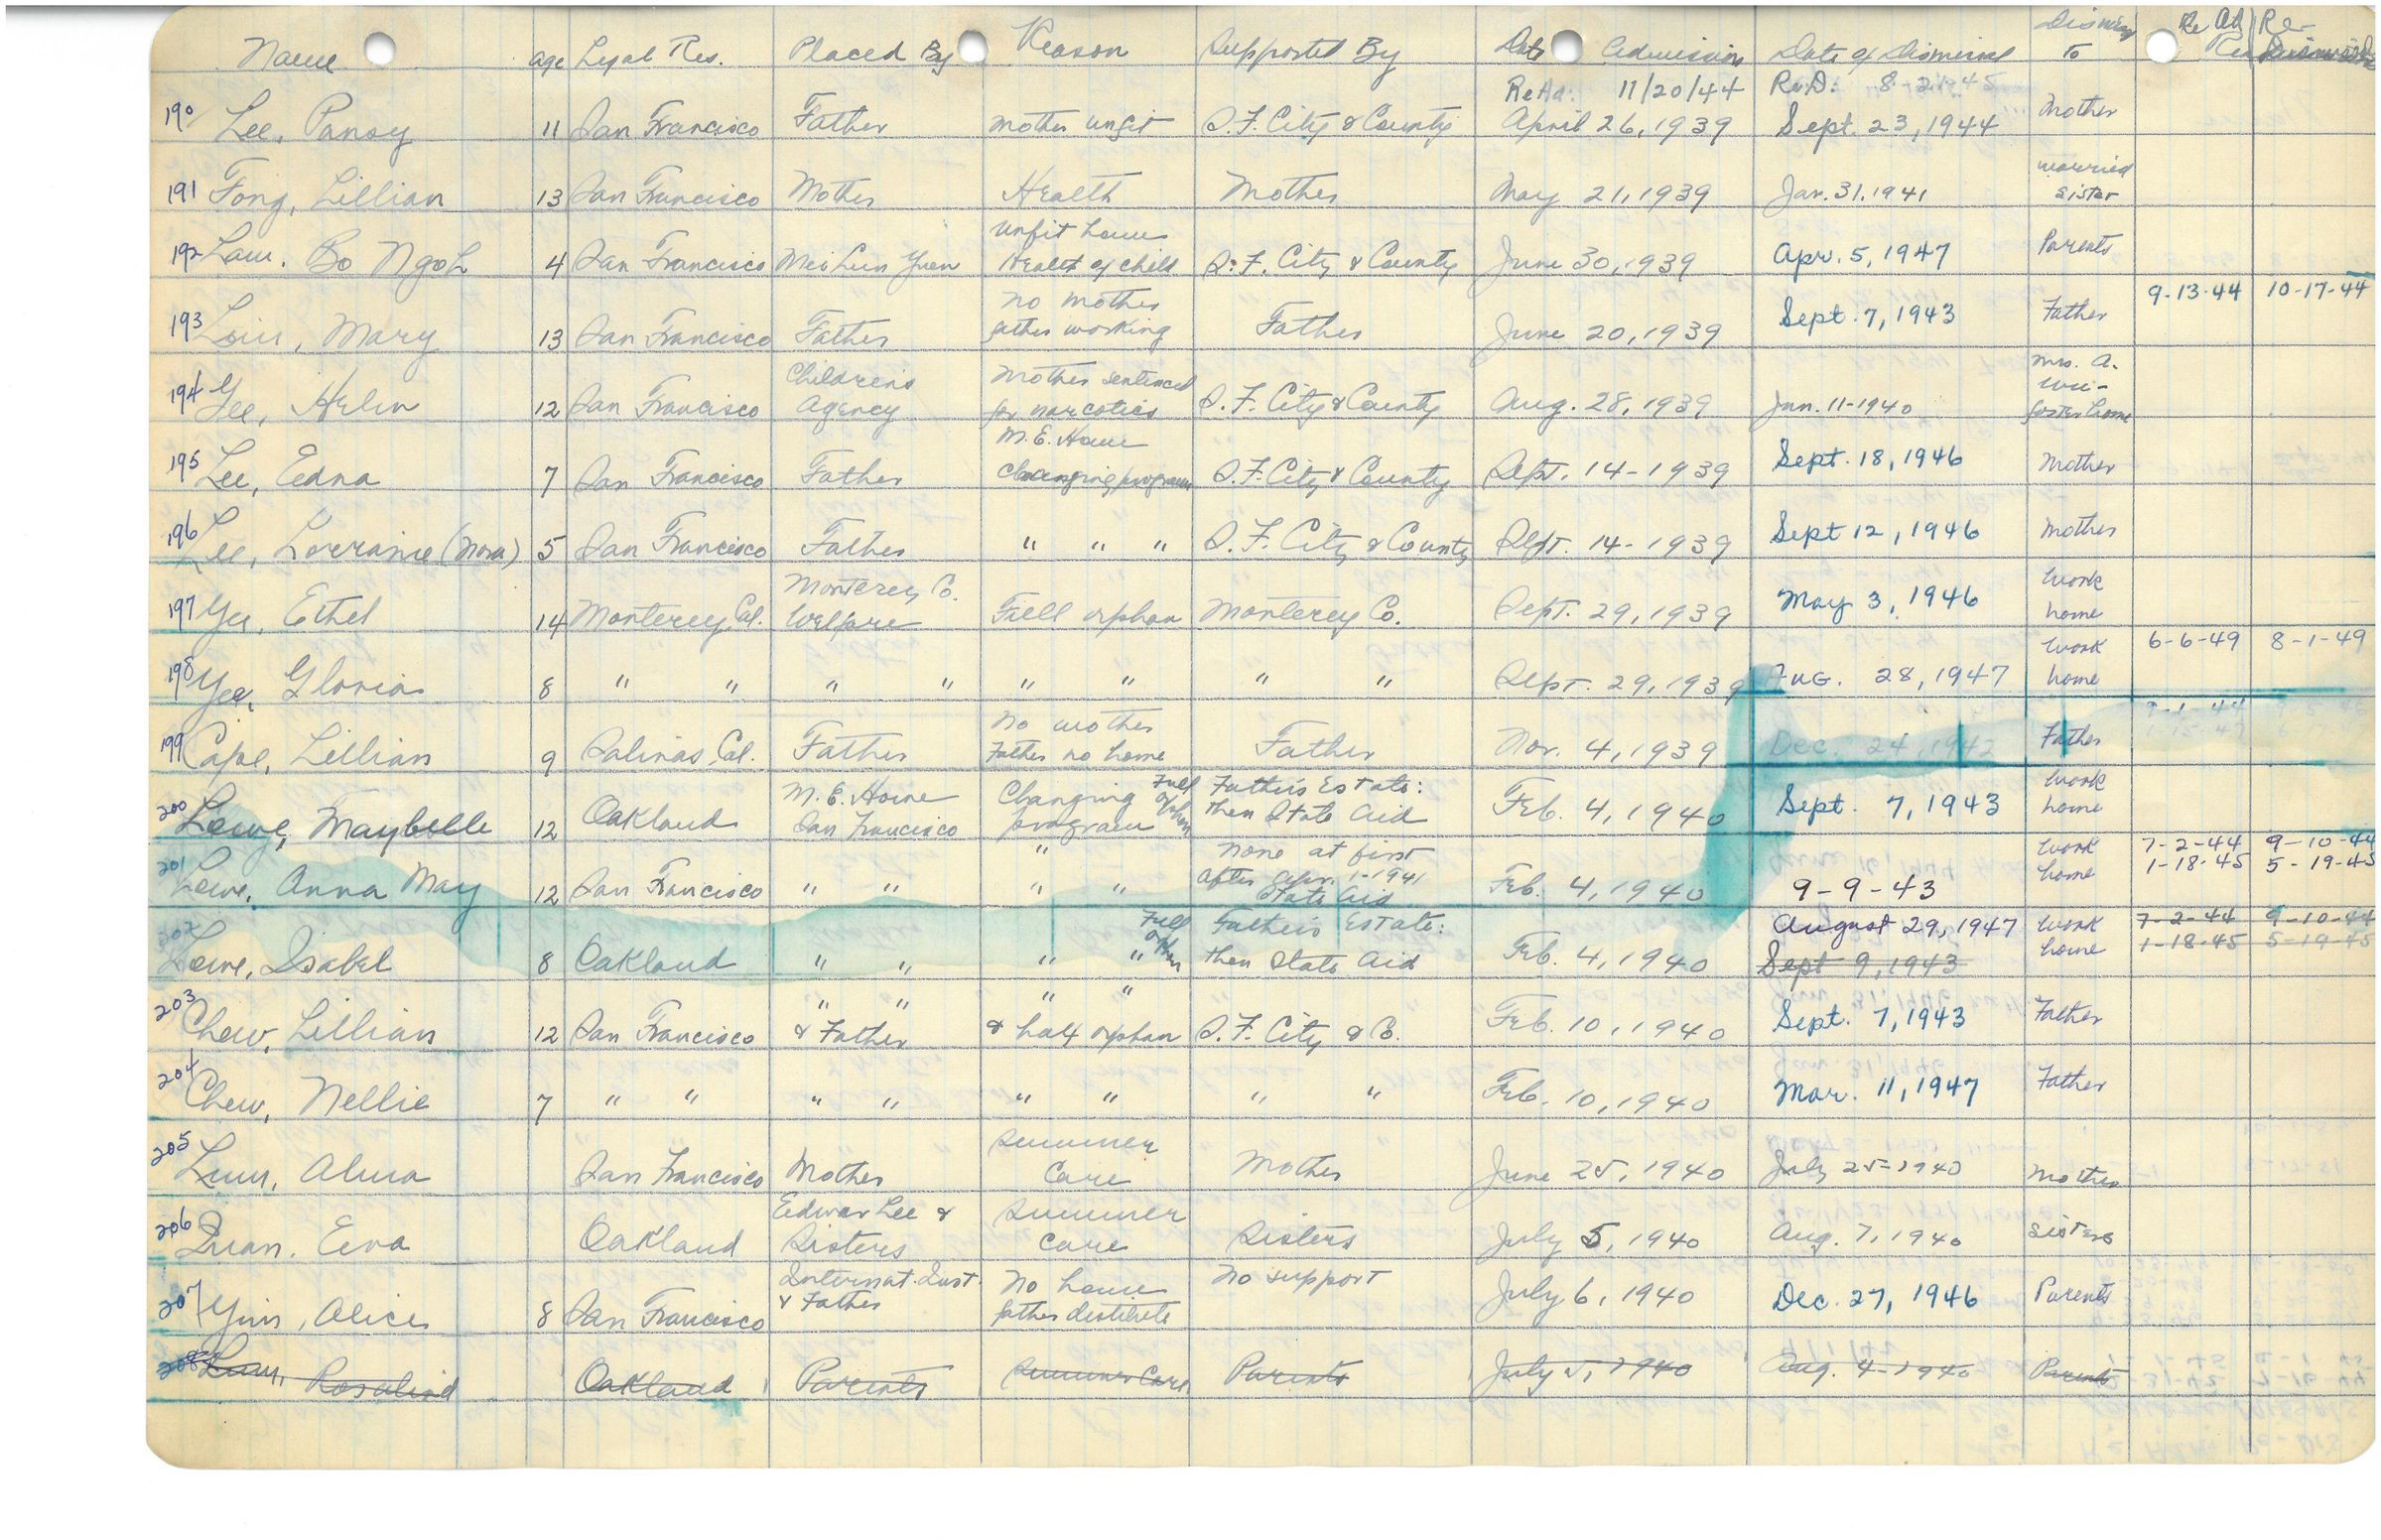 Name age Legal Res. Placed By Reason Supported By Date Admission Date of Dismissal Dismissed to Re Ad Re-
ReAd: 11/20/44 Re.D: 8-21-45
190 Lee, Pansy 11 San Francisco Father mother unfit S.F. City & County April 26, 1939 Sept. 23, 1944 Mother
191 Fong, Lillian 13 San Francisco Mother Health Mother May 21, 1939 Jan. 31, 1941 married sister
192 Lau, Bo Ngoh 4 San Francisco Mei Lun Yuen unfit home Health of child S.F. City & County June 30, 1939 Apr. 5, 1947 Parents
193 Louie, Mary 13 San Francisco Father no mother father working Father June 20, 1939 Sept. 7, 1943 Father 9-13-44 10-17-44
194 Yee, Helen 12 San Francisco Children's Agency Mother sentenced for narcotics S.F. City & County Aug. 28, 1939 Jan. 11-1940 Mrs. A. Wu- foster home
195 Lee, Edna 7 San Francisco Father M.E. Home changing program S.F. City & County Sept. 14-1939 Sept. 18, 1946 Mother
196 Lee, Lorraine (Nora) 5 San Francisco Father " " " S.F. City & County Sept. 14-1939 Sept 12, 1946 Mother
197 Yee, Ethel 14 Monterey, Cal. Monterey Co. Welfare Full orphan Monterey Co. Sept. 29, 1939 May 3, 1946 Work home
198 Yee, Gloria 8 " " " " " " " " Sept. 29, 1939 Aug. 28, 1947 Work home 6-6-49 8-1-49
199 Cape, Lillian 9 Salinas, Cal. Father no mother Father no home Father Nov. 4, 1939 Dec. 24, 1942 Father
200 Lowe, Maybelle 12 Oakland M.E. Home San Francisco Changing program Full orphan Father's Estate: then State Aid Feb. 4, 1940 Sept. 7, 1943 Work home
201 Lowe, Anna May 12 San Francisco " " " " " none at first after Apr. 1-1941 State Aid Feb. 4, 1940 9-9-43 Work home 7-2-44 9-10-44 1-18-45 5-19-45
202 Lowe, Isabel 8 Oakland " " " " Full orphan Father's Estate: then State Aid Feb. 4, 1940 August 29, 1947 Sept 9, 1943 Work home 7-2-44 9-10-44 1-18-45 5-19-45
203 Chew, Lillian 12 San Francisco " " & Father " " & half orphan S.F. City & Co. Feb. 10, 1940 Sept. 7, 1943 Father
204 Chew, Nellie 7 " " " " " " " " Feb. 10, 1940 Mar. 11, 1947 Father
205 Lum, Alma San Francisco Mother Summer Care Mother June 25, 1940 July 25-1940 Mother
206 Quan, Eva Oakland Edwar Lee & Sisters Summer Care Sisters July 5, 1940 Aug. 7, 1940 Sisters
207 Yim, Alice 8 San Francisco Internat. Inst. & Father No home father destitute No support July 6, 1940 Dec. 27, 1946 Parents
208 Lum, Rosalind Oakland Parents Summer Care Parents July 5, 1940 Aug. 4-1940 Parents